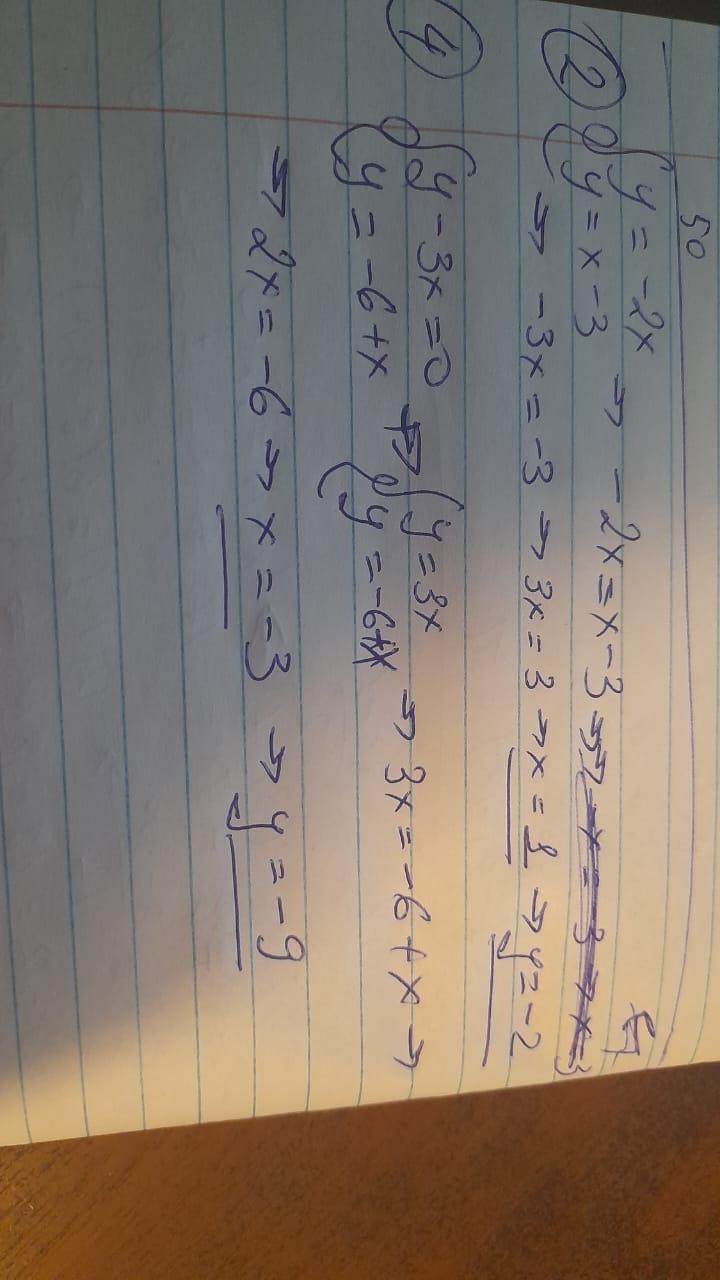 50
② { y = -2x
y = x - 3 → -2x = x - 3 →
→ -3x = -3 → 3x = 3 → x = 1 → y = -2
④ { y - 3x = 0
y = -6 + x → { y = 3x
y = -6 + x → 3x = -6 + x →
→ 2x = -6 → x = -3 → y = -9